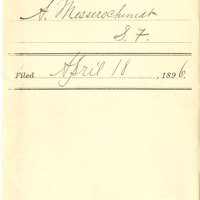 A. Messerschmidt
S. F.
Filed April 18, 1896.